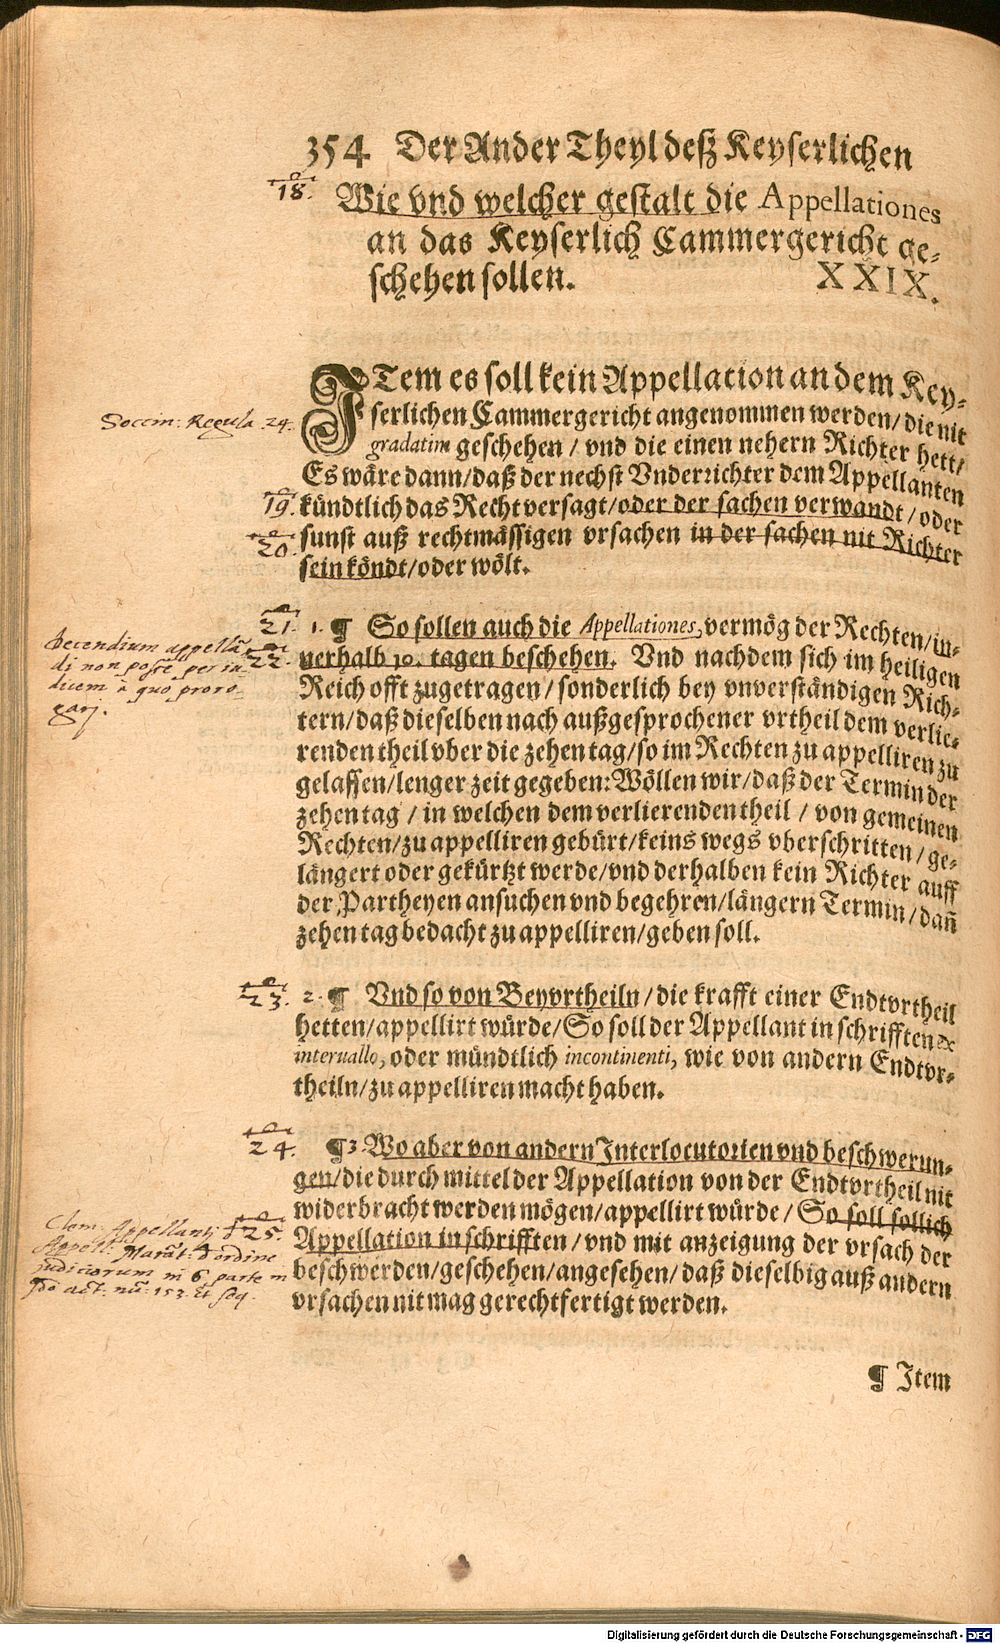 354 Der Ander Theyl deß Keyserlichen
18.
Wie vnd welcher gestalt die Appellationes
an das Keyserlich Cammergericht ge-
schehen sollen. XXIX.
ITem es soll kein Appellation an dem Key-
Soccin: Regula. 24.
serlichen Cammergericht angenommen werden/die nit
gradatim geschehen / vnd die einen nehern Richter hett/
Es wäre dann/daß der nechst Vnderrichter dem Appellanten
19.
kündtlich das Recht versagt/oder der sachen verwandt / oder
20.
sunst auß rechtmässigen vrsachen in der sachen nit Richter
sein köndt/oder wölt.
21. 1. ¶ So sollen auch die Appellationes, vermög der Rechten/in-
Decendium appellā
di non posse per iu-
dicem à quo proro-
garj.
22.
nerhalb 10. tagen beschehen. Vnd nachdem sich im heiligen
Reich offt zugetragen/sonderlich bey vnverständigen Rich-
tern/daß dieselben nach außgesprochener vrtheil dem verlie-
renden theil vber die zehen tag/so im Rechten zu appelliren zu
gelassen/lenger zeit gegeben: Wöllen wir/daß der Termin der
zehen tag / in welchen dem verlierenden theil / von gemeinen
Rechten/zu appelliren gebürt/keins wegs vberschritten / ge-
längert oder gekürtzt werde/vnd derhalben kein Richter auff
der Partheyen ansuchen vnd begehren/längern Termin/dañ
zehen tag bedacht zu appelliren/geben soll.
23. 2. ¶ Vnd so von Beyvrtheiln/die krafft einer Endtvrtheil
hetten/appellirt würde/So soll der Appellant in schrifften ex
interuallo, oder mündtlich incontinenti, wie von andern Endtvr-
theiln/zu appelliren macht haben.
24.
¶ 3. Wo aber von andern Interlocutorien vnd beschwerun-
gen/die durch mittel der Appellation von der Endtvrtheil nit
widerbracht werden mögen/appellirt würde / So soll sollich
Clem: Appellanti d
Appell: Marāt: d ordine
judiciorum in 6. parte
act: nū: 153. et seq.
25.
Appellation in schrifften / vnd mit anzeigung der vrsach der
beschwerden/geschehen/angesehen/daß dieselbig auß andern
vrsachen nit mag gerechtfertigt werden.
¶ Item
Digitalisierung gefördert durch die Deutsche Forschungsgemeinschaft - DFG